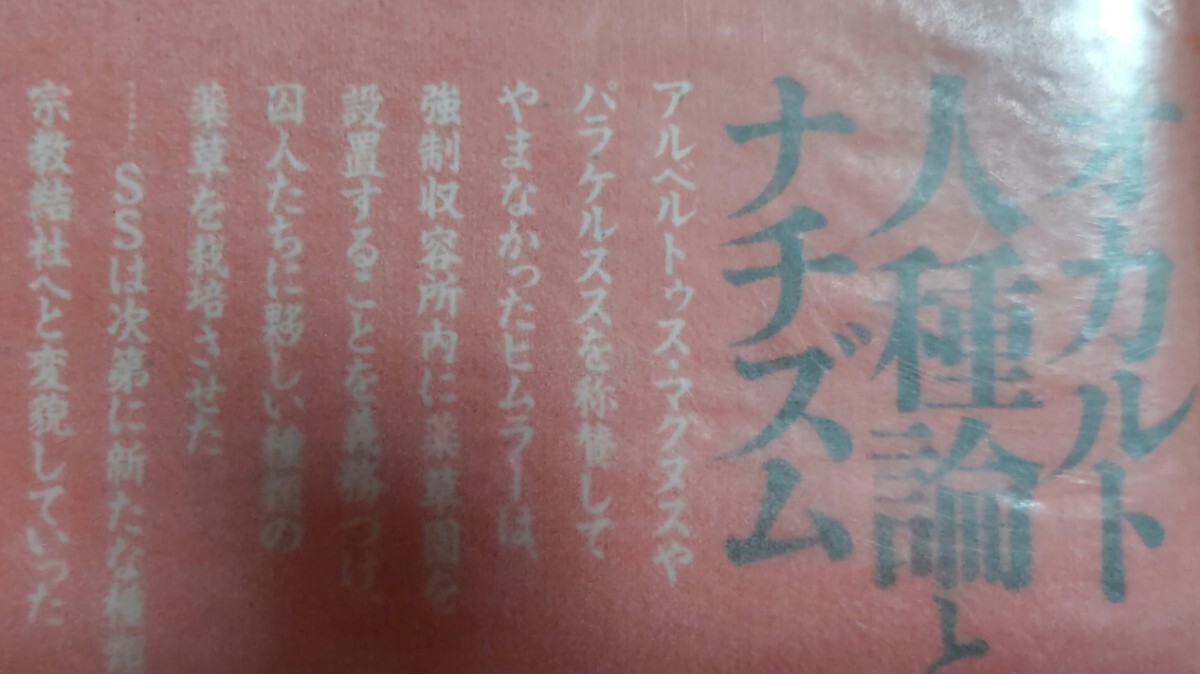 オカルト
人種論と
ナチズム
アルベルトゥス・マグヌスや
パラケルススを称賛して
やまなかったヒムラーは、
強制収容所内に薬草園を
設置することを義務づけ、
囚人たちに夥しい種類の
薬草を栽培させた
……SSは次第に新たな種類
宗教結社へと変貌していった